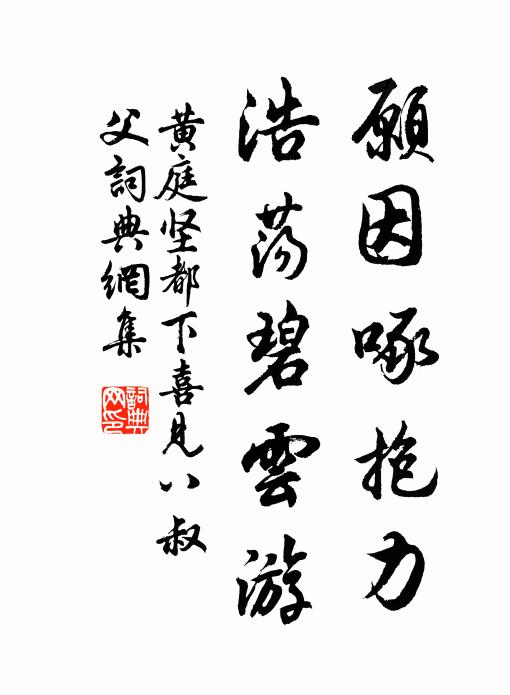 願因啄抱力
浩蕩碧雲游
黄庭坚都下喜見八叔
父詞典網集
詞典
网印